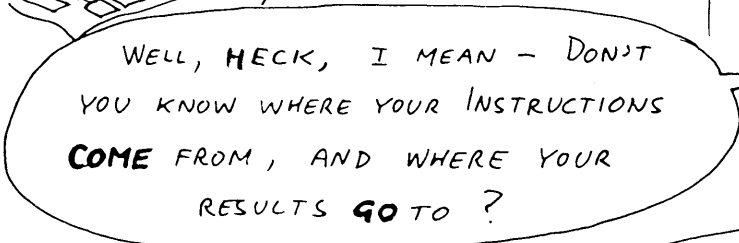 WELL, HECK, I MEAN – DON'T
YOU KNOW WHERE YOUR INSTRUCTIONS
COME FROM, AND WHERE YOUR
RESULTS GO TO ?